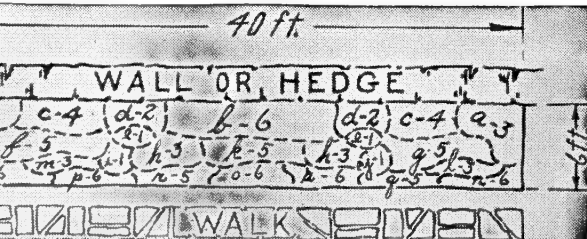 40 ft.
WALL OR HEDGE
c-4 d-2 b-6 d-2 c-4 a-3
e-1 e-1
f 5 m-3 i-1 h-3 k-5 h-3 j-1 g-5 l-3
6 p-6 n-5 o-6 n-6 q-5 n-6
6 ft.
WALK